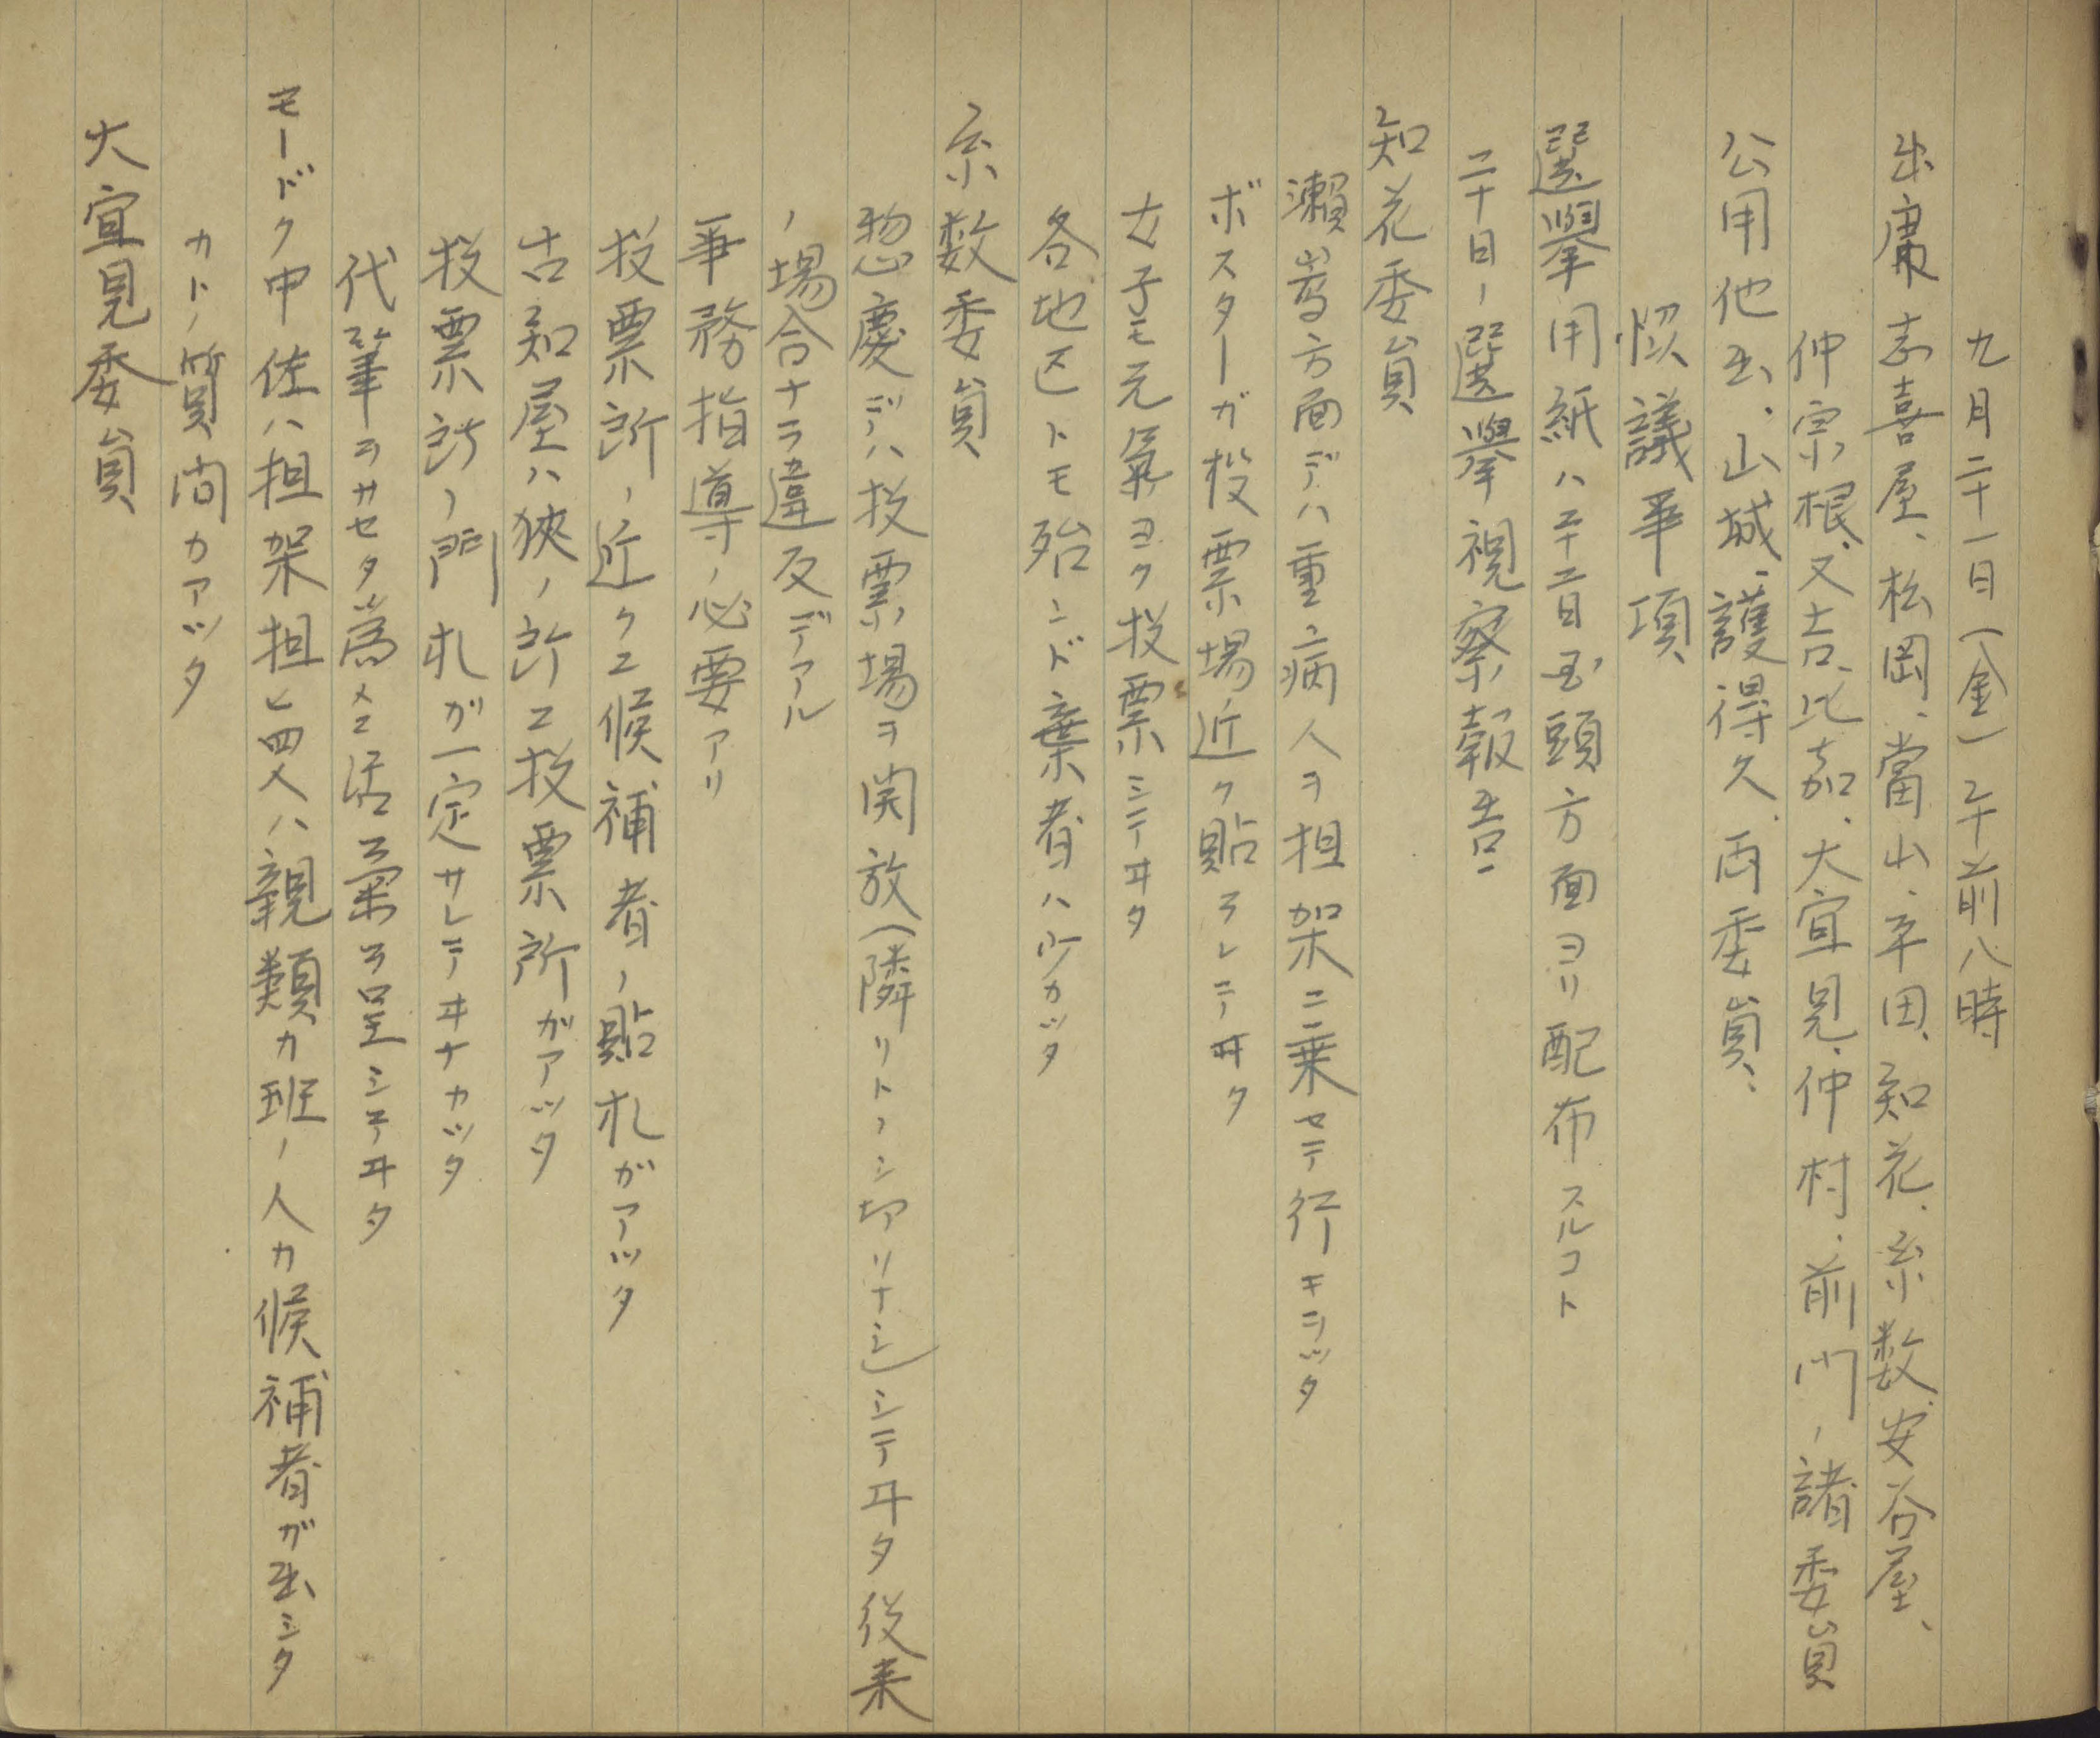 九月二十一日(金)午前八時
出席 志喜屋、松岡、當山、平田、知花、糸数、安谷屋、
仲宗根、又吉、比嘉、大宜見、仲村、前門ノ諸委員
公用他出、山城、護得久、両委員、
協議事項
選擧用紙ハ二十二日国頭方面ヨリ配布スルコト
二十日ノ選擧視察報告
知花委員
瀬嵩方面デハ重病人ヲ担架ニ乗セテ行キヨツタ
ボスターガ投票場近ク貼ラレテヰタ
女子モ元氣ヨク投票シテヰタ
各地区トモ殆ンド棄者ハ少カツタ
糸数委員
惣慶デハ投票場ヲ開放(隣リトノシ切リナシ)シテヰタ従来
ノ場合ナラ違反デアル
事務指導ノ必要アリ
投票所ノ近クニ候補者ノ貼札ガアツタ
古知屋ハ狹ノ所ニ投票所ガアツタ
投票所ノ門札ガ一定サレテヰナカツタ
代筆ヲサセタ為メニ活氣ヲ呈シテヰタ
モードク中佐ハ担架担ヒ四人ハ親類カ班ノ人カ候補者ガ出シタ
カトノ質問カアツタ
大宜見委員